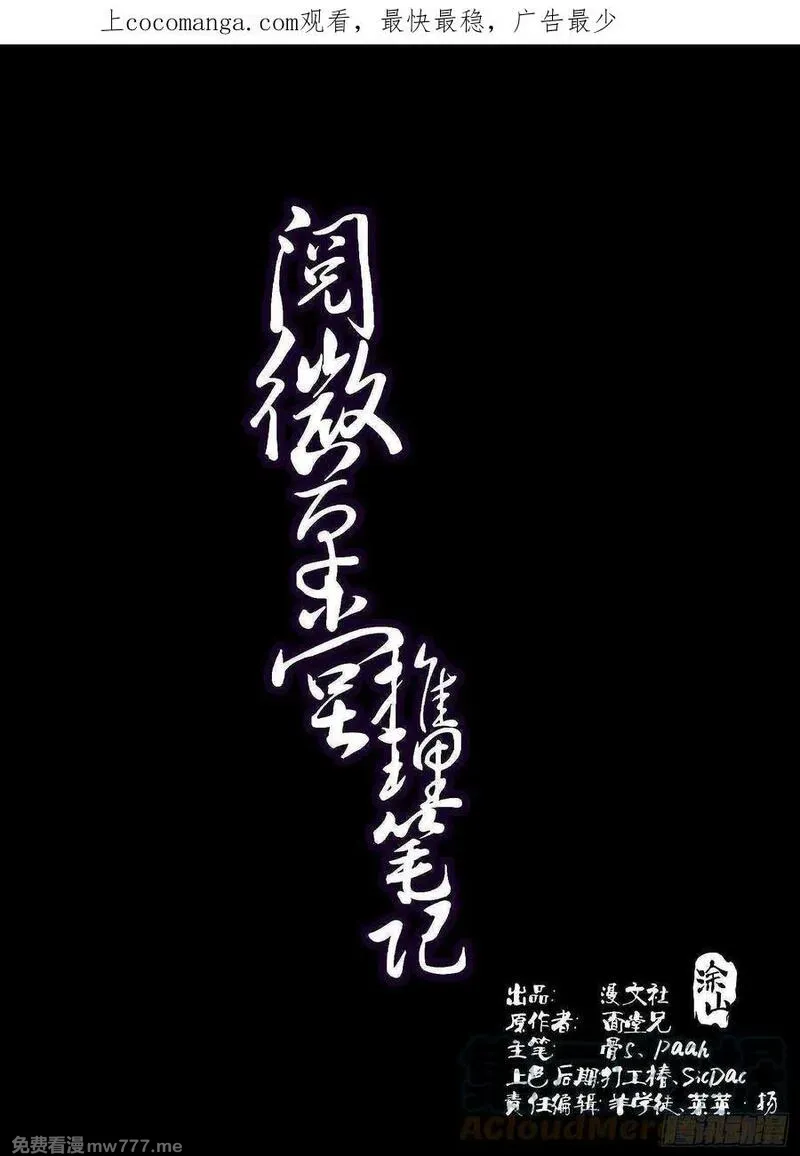 上cocomanga.com观看，最快最稳，广告最少
阅微草堂
推理笔记
涂山
出品： 漫文社
原作者： 面堂兄
主笔： 骨S、paah
上色后期:打工椿、SicDac
責任编辑:羊学徒、菜菜·扬
AcloudMerge
腾讯动漫
免费看漫mw777.me